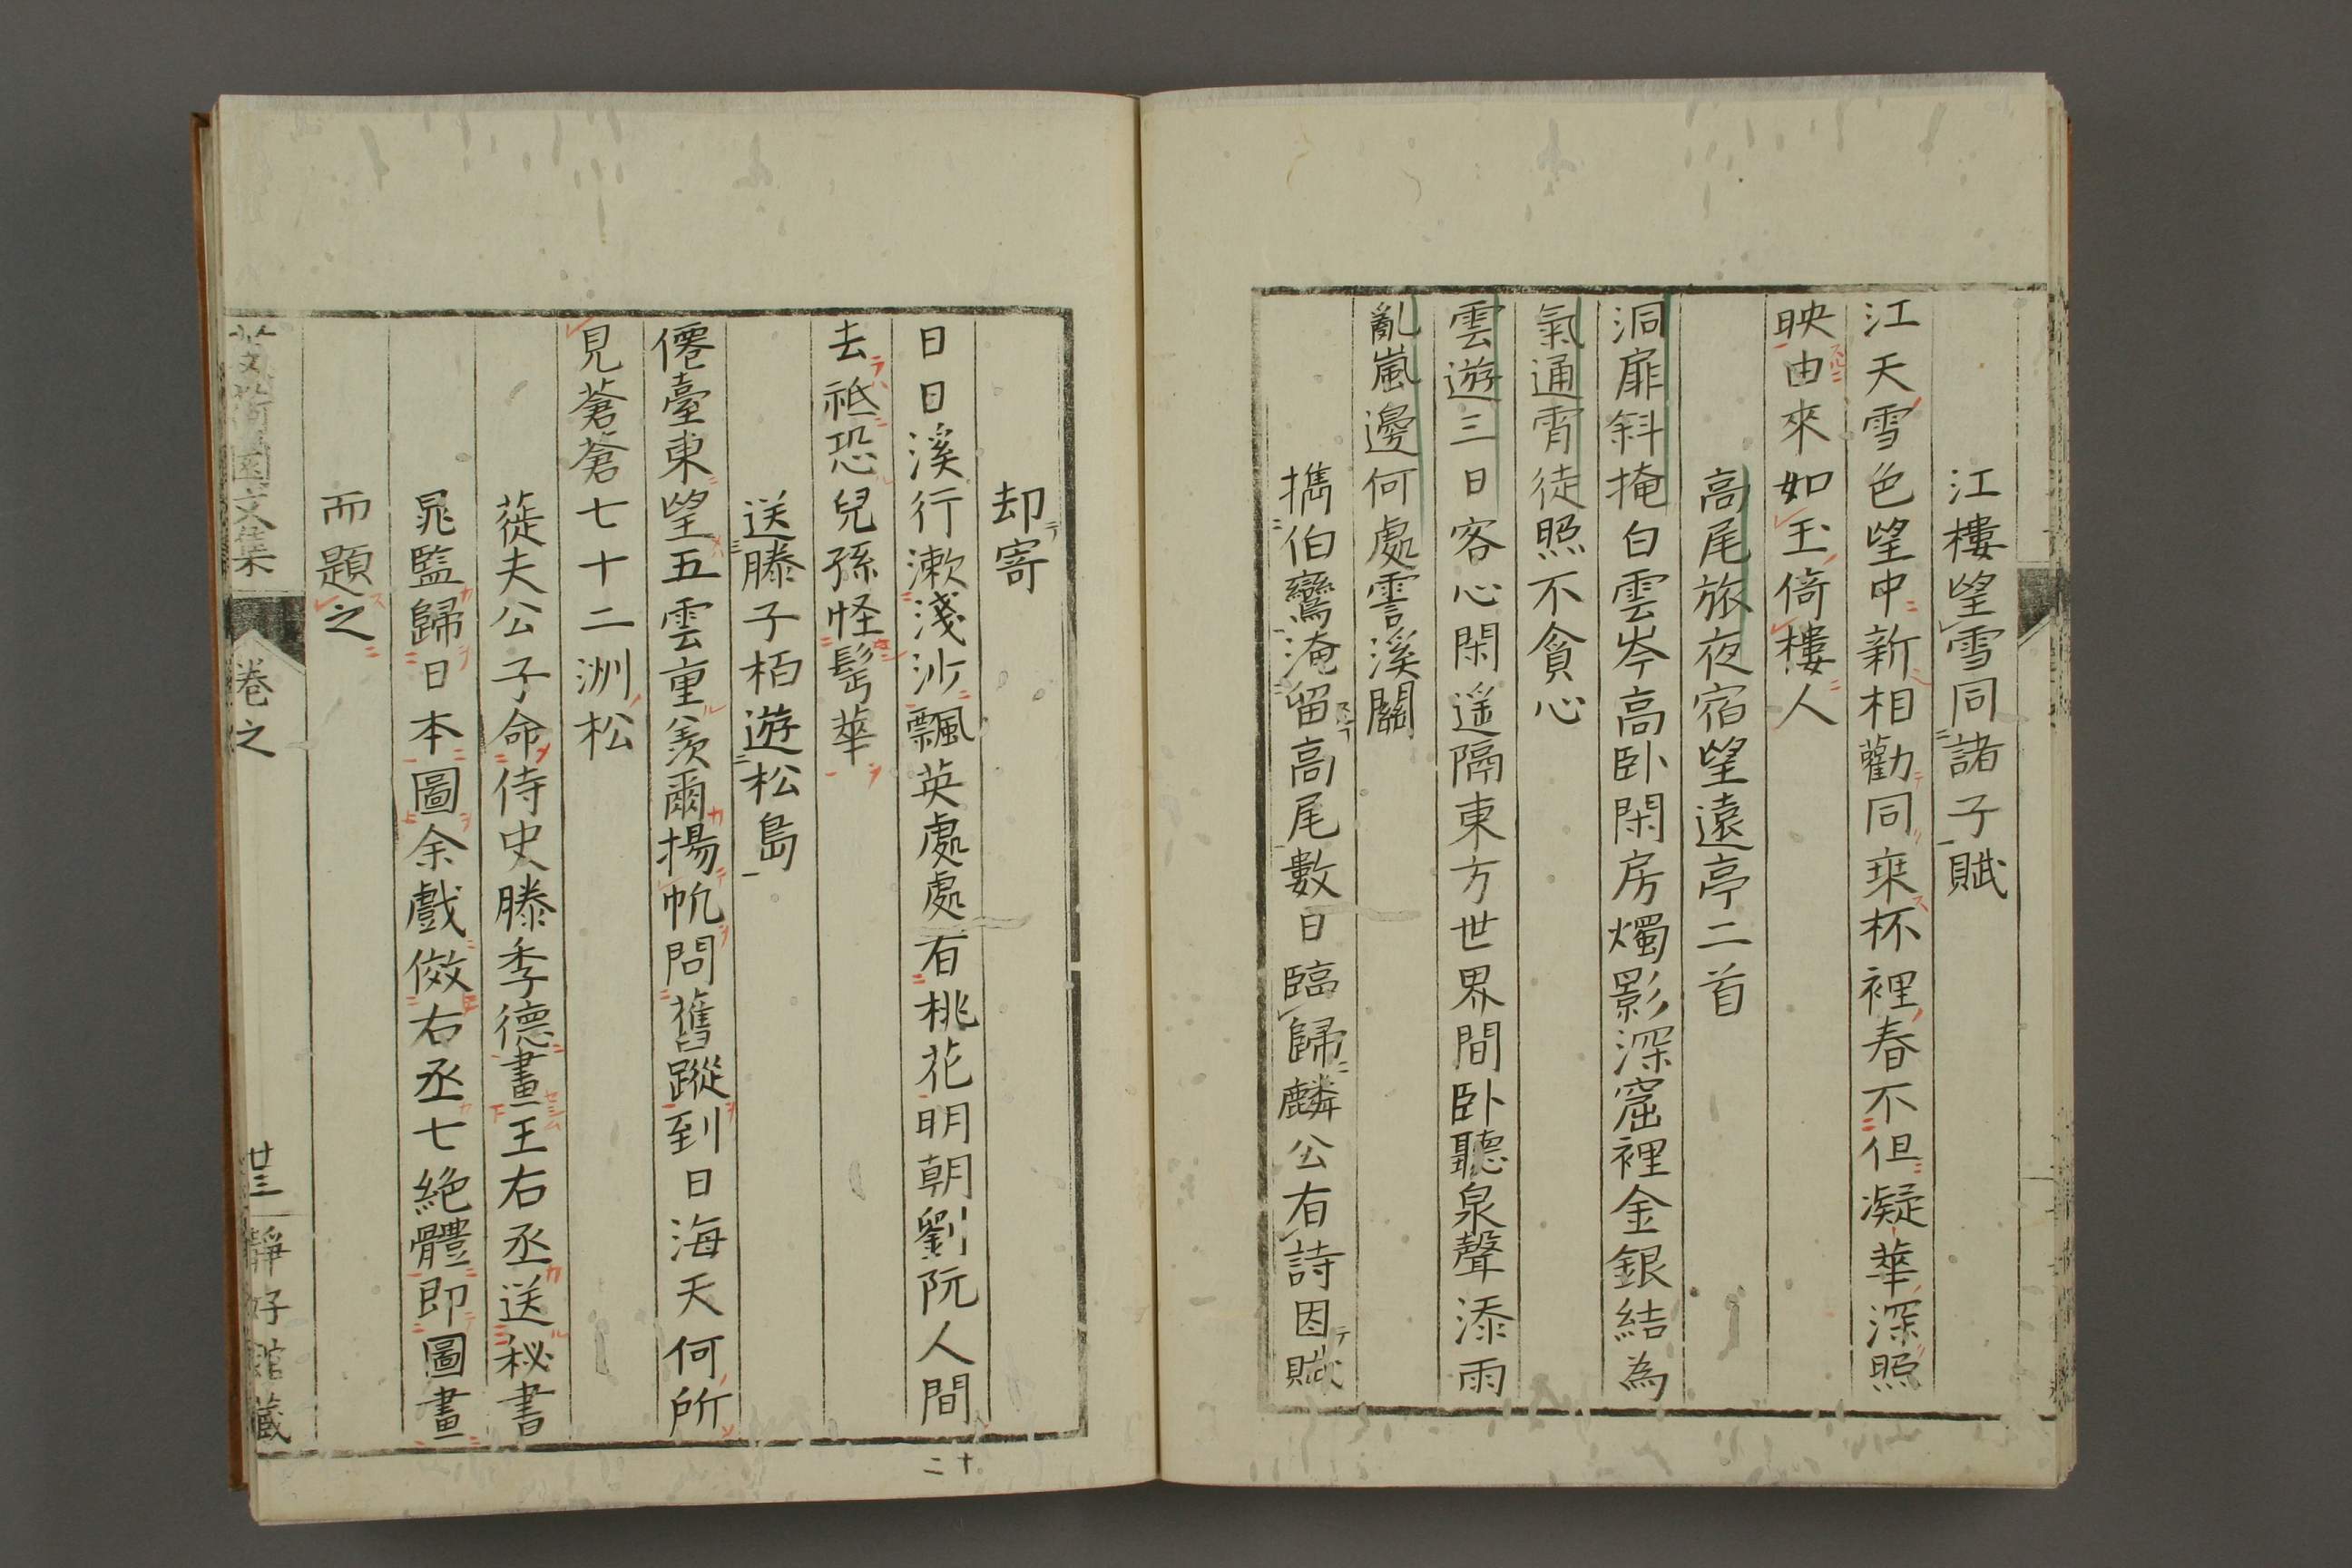 江樓望雪同諸子賦
江天雪色望中新相勸同乗杯裡春不但凝華深照
映由來如玉倚樓人
高尾旅夜宿望遠亭二首
洞扉斜掩白雲岑高臥閑房燭影深窟裡金銀結為
氣通宵徒照不貪心
雲遊三日客心閑遥隔東方世界間臥聽泉聲添雨
亂嵐邊何處雲溪關
攜伯鸞淹留高尾數日臨歸麟公有詩因賦
却寄
日日溪行漱淺沙飄英處處有桃花明朝劉阮人間
去祗恐兒孫怪髩華
送滕子栢遊松島
僊臺東望五雲重羨爾揚帆問舊蹤到日海天何所
見蒼蒼七十二洲松
蓰夫公子命侍史滕季德畫王右丞送秘書
晁監歸日本圖余戲傚右丞七絶體即圖畫
而題之
園文集
卷之
廿三
靜好館藏
十二